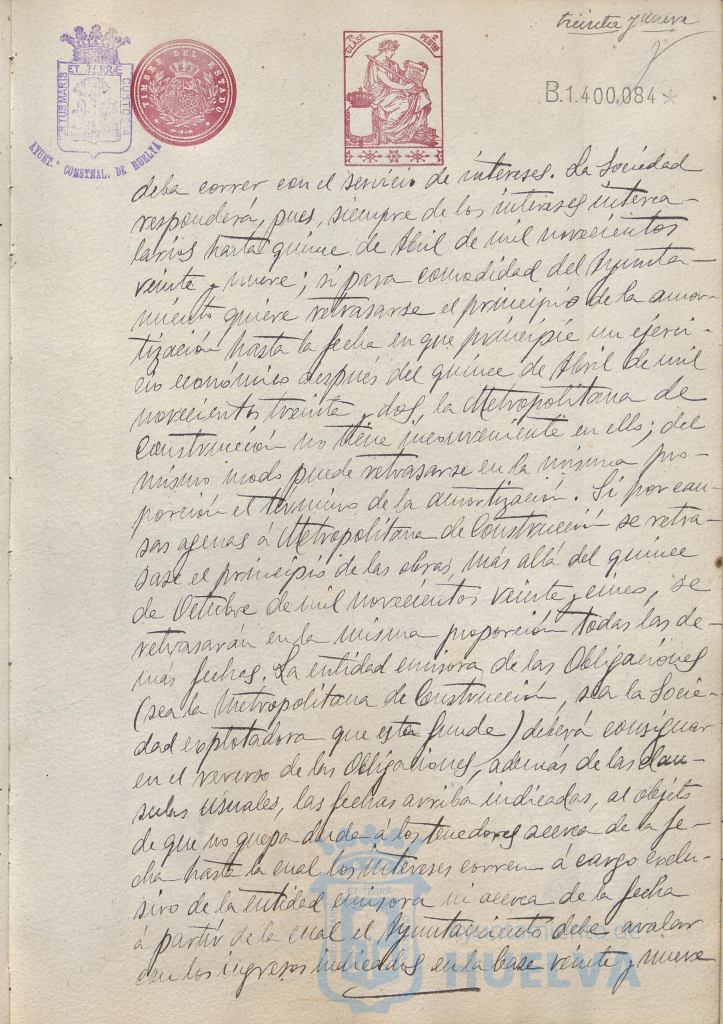 treinta y nueve
ET TERRÆ
PORTUS MARIS
CUSTODIA
AYUNT.º CONSTNAL. DE HUELVA
TIMBRE DEL ESTADO
7ª CLASE
2 PESTS
B.1.400,084
deba correr con el servicio de intereses. La Sociedad
responderá, pues, siempre de los intereses interca-
larios hasta quince de Abril de mil novecientos
veinte y nueve; si para comodidad del Ayunta-
miento quiere retrasarse el principio de la amor-
tización hasta la fecha en que principie un ejerci-
cio económico después del quince de Abril de mil
novecientos treinta y dos, la Metropolitana de
Construcción no tiene inconveniente en ello; del
mismo modo puede retrasarse en la misma pro-
porción el término de la amortización. Si por cau-
sas agenas á Metropolitana de Construcción se retra-
sase el principio de las obras, más allá del quince
de Octubre de mil novecientos veinte y cinco, se
retrasarán en la misma proporción todas las de-
más fechas. La entidad emisora de las Obligaciones
(sea la Metropolitana de Construcción, sea la Socie-
dad explotadora que esta funde) deberá consignar
en el reverso de las Obligaciones, además de las clau-
sulas usuales, las fechas arriba indicadas, al objeto
de que no quepa duda á los tenedores acerca de la fe-
cha hasta la cual los intereses corren á cargo exclu-
sivo de la entidad emisora ni acerca de la fecha
á partir de la cual el Ayuntamiento debe avalar
con los ingresos indicados en la base veinte y nueve
ET TERRÆ
Ayuntamiento de
HUELVA